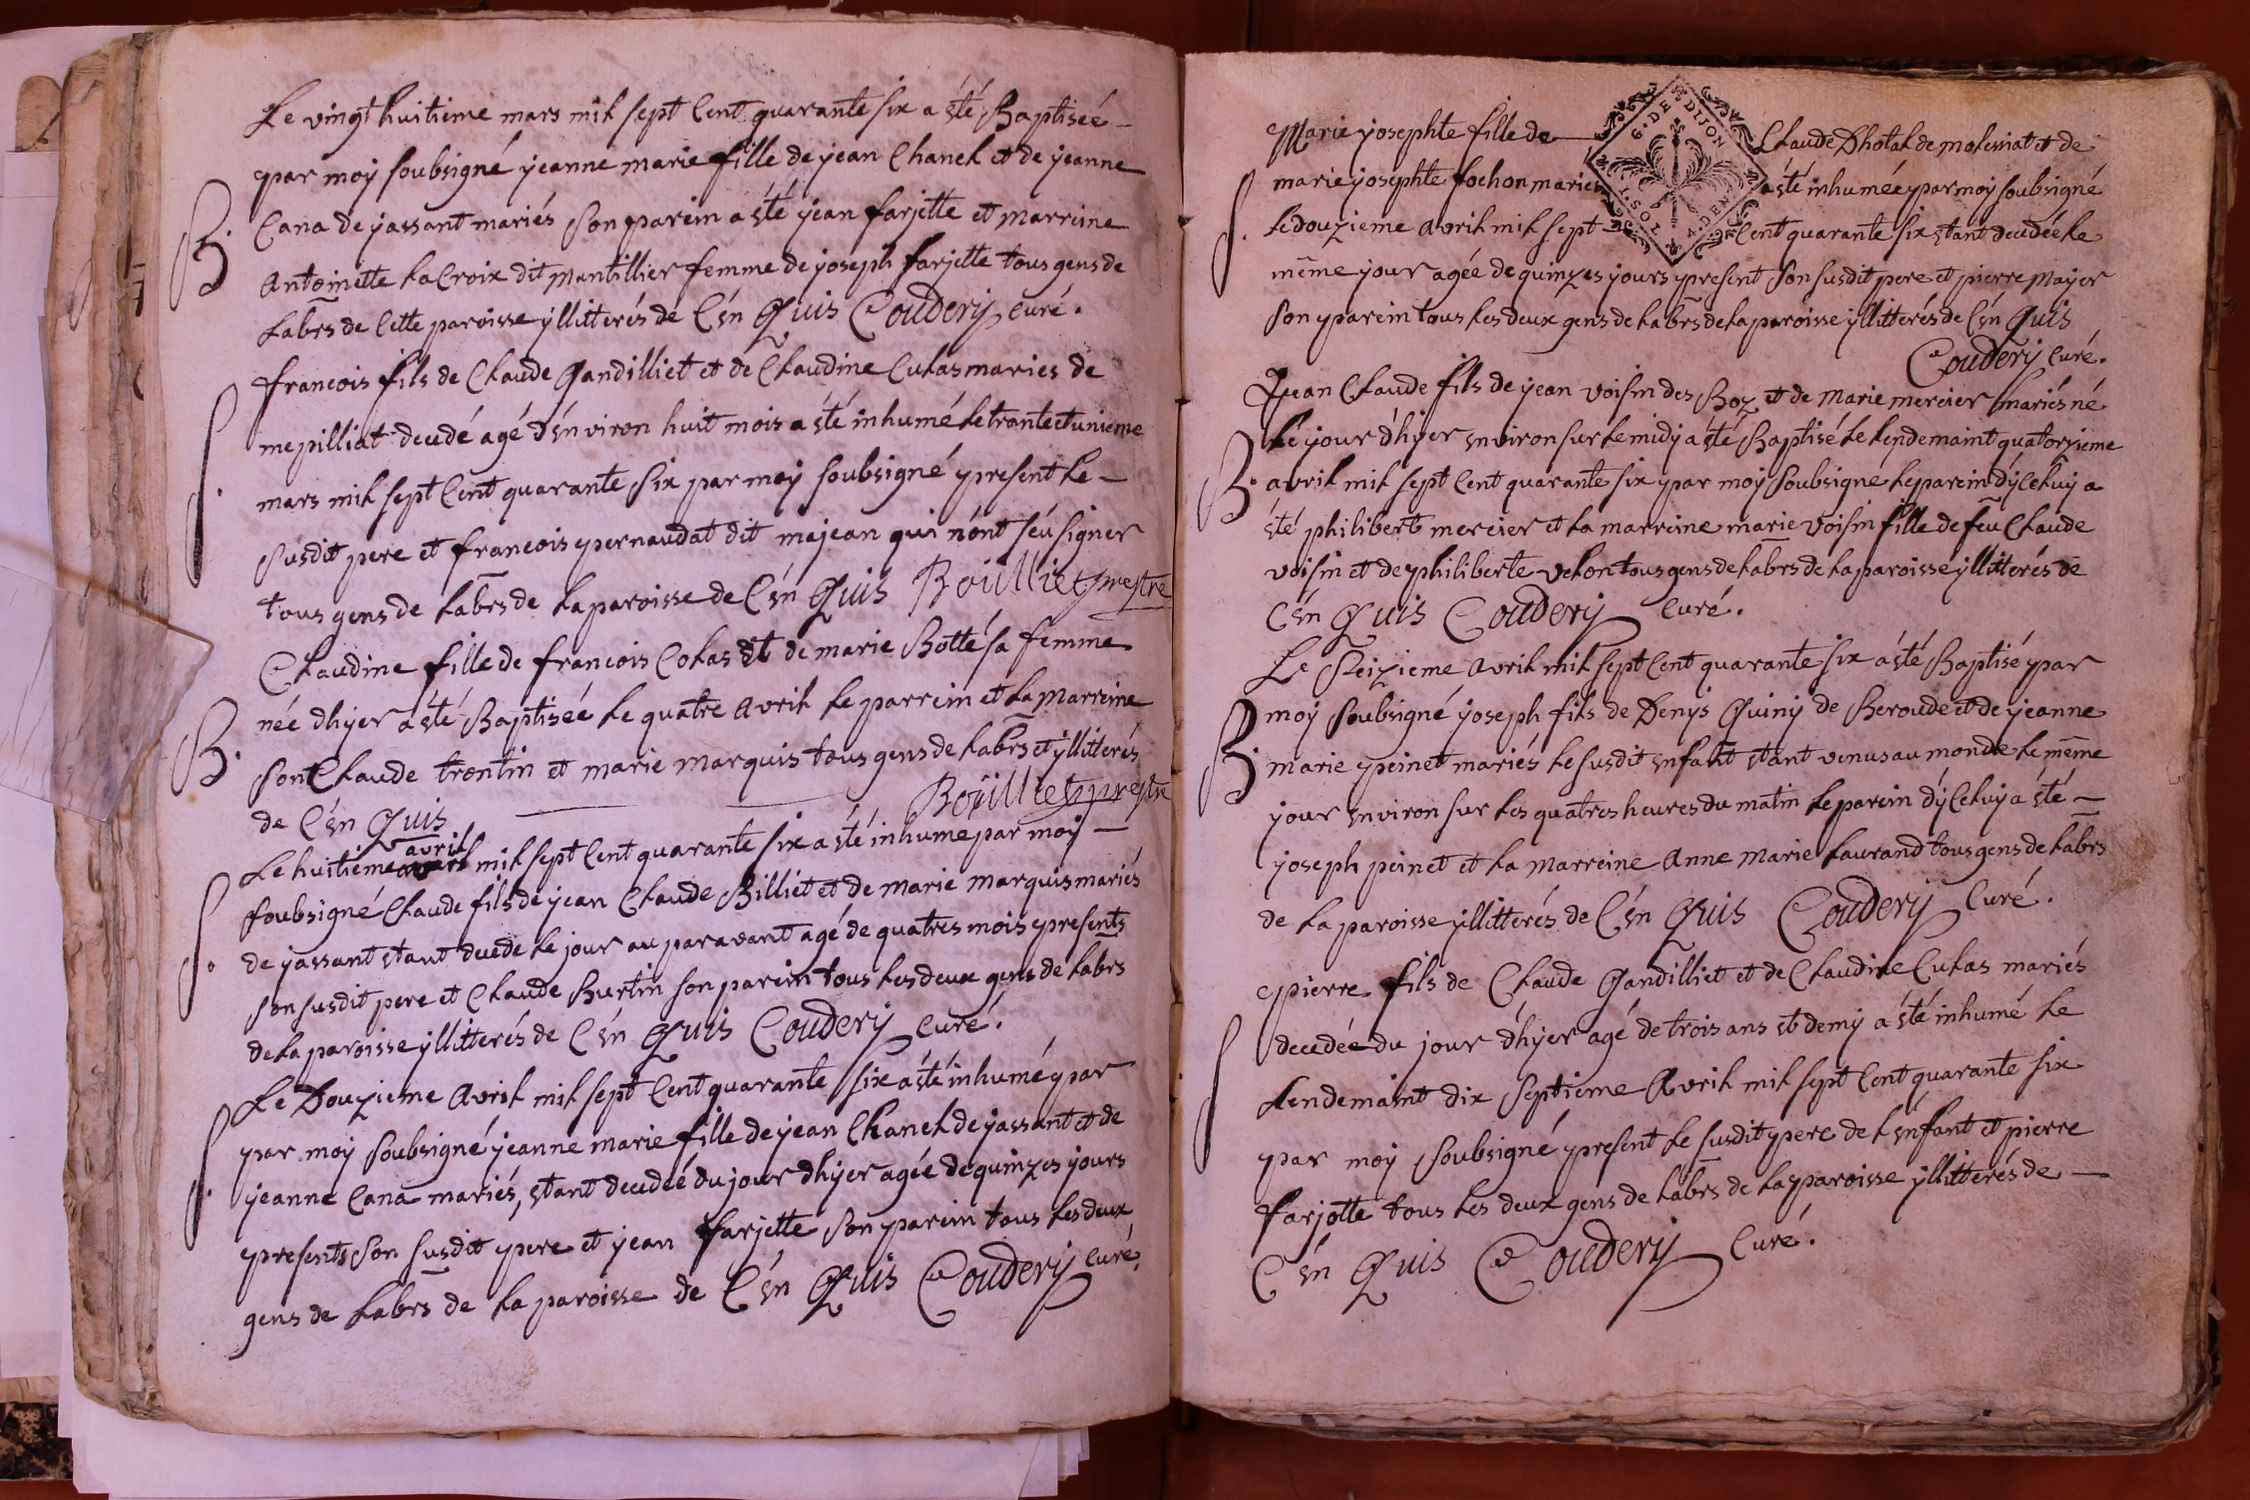 Le vingt huitieme mars mil sept Cent quarante six a êté Baptiseé
par moy soubsigné jeanne marie fille de jean Chanel et de jeanne
B. Cana de jassant mariés son parein a êté jean farjette et marreine
Antoinette La Croix dit Mantillier femme de joseph farjette tous gens de
Labrs de Cette paroisse yllitterés de C'en Quis Coudery Curé.
francois fils de Claude Gandilliet et de Claudine Cutas maries de
S. mepilliat decedé agé d'environ huit mois a êté inhumé le trante et unieme
mars mil sept Cent quarante six par moy soubsigné present le
susdit pere et francois pernaudat dit majean qui n'ont séu signer
tous gens de Labrs de La paroisse de C'en Quis Boüilliet prestre
Claudine fille de francois Colas et de marie Botté sa femme
née d'hyer a êté Baptiseé Le quatre Avril Le parrein et La Marreine
B. sont Claude trontin et marie marquis tous gens de Labrs et yllitterés
de C'en Quis Boüilliet prestre
avril
Le huitieme mil sept Cent quarante six a êté inhume par moy
S. soubsigné Claude fils de jean Claude Billiet et de marie marquis mariés
de jassant êtant decedé Le jour au paravant agé de quatres mois presents
son susdit pere et Claude Burtin son parein tous Les deux gens de Labrs
de La paroisse yllitterés de C'en Quis Coudery Curé.
Le Douzieme Avril mil sept Cent quarante six a êté inhumé par
S. par moy soubsigné jeanne marie fille de jean Chanel de jassant et de
jeanne Cana mariés, êtant decedeé du jour d'hyer agée de quinzes jours
presents son susdit pere et jean farjette son parein tous Les deux
gens de Labrs de La paroisse de C'en Quis Coudery Curé.
G. DE DIJON
I. SOL 4. DEN
Marie josephte fille de Claude Dhotal de molessiat et de
S. marie josephte fochon mariés a êté inhumée par moy soubsigné
Le douzieme Avril mil sept Cent quarante six êtant decedeé Le
même jour agée de quinzes jours present son susdit pere et pierre Mayer
son parein tous Les deux gens de Labrs de La paroisse yllitterés de C'en Quis
Coudery Curé.
Jean Claude fils de jean voisin des Boz et de Marie mercier mariés né
Le jour d'hyer environ sur Le midy a êté Baptisé Le Lendemaint quatorzieme
B. avril mil sept Cent quarante six par moy soubsigné Le parein d'yCeluy a
êté philibert mercier et La marreine marie voisin fille de feu Claude
voisin et de philiberte velon tous gens de Labrs de La paroisse yllitterés de
C'en Quis Coudery Curé.
Le Seizieme Avril mil sept Cent quarante six a êté Baptisé par
B. moy soubsigné joseph fils de Denys Guiny de Beroude et de jeanne
marie peinet mariés Le susdit enfant êtant venus au monde Le même
jour environ sur Les quatres heures du matin Le parein d'yCeluy a êté
joseph peinet et La Marreine Anne Marie Laurand tous gens de Labrs
de La paroisse yllitterés de C'en Quis Coudery Curé.
pierre fils de Claude Gandilliet et de Claudine Cutas mariés
S decedée du jour d'hyer agé de trois ans et demy a êté inhumé Le
Lendemaint dix septieme Avril mil sept Cent quarante six
par moy soubsigné present Le susdit pere de L'enfant et pierre
farjotte tous Les deux gens de Labrs de La paroisse yllitterés de
C'en Quis Coudery Curé.